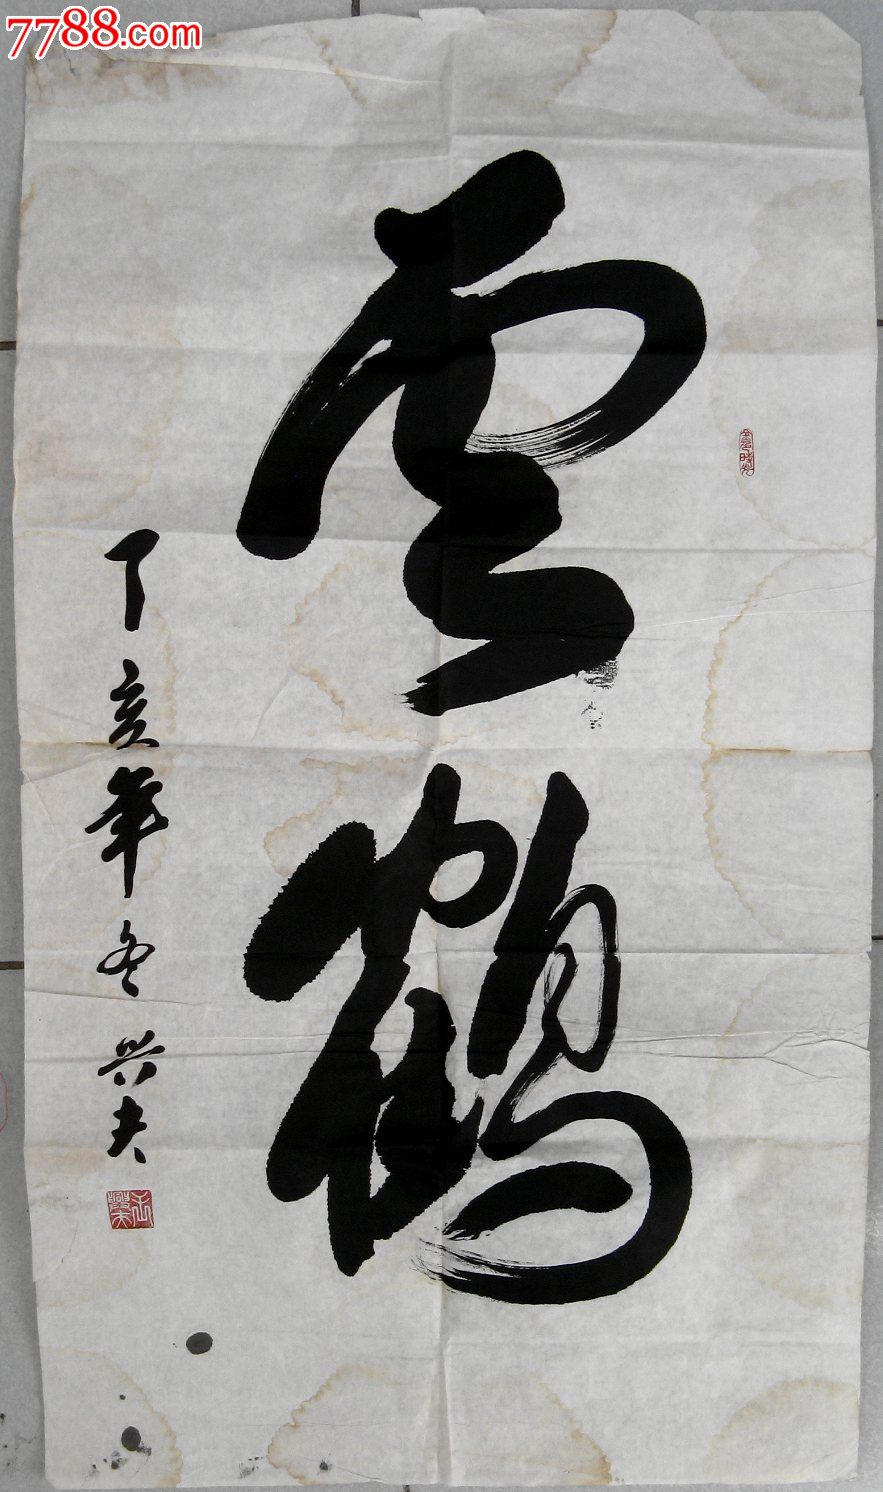 7788.com
雲鶴
丁亥年冬 兴夫